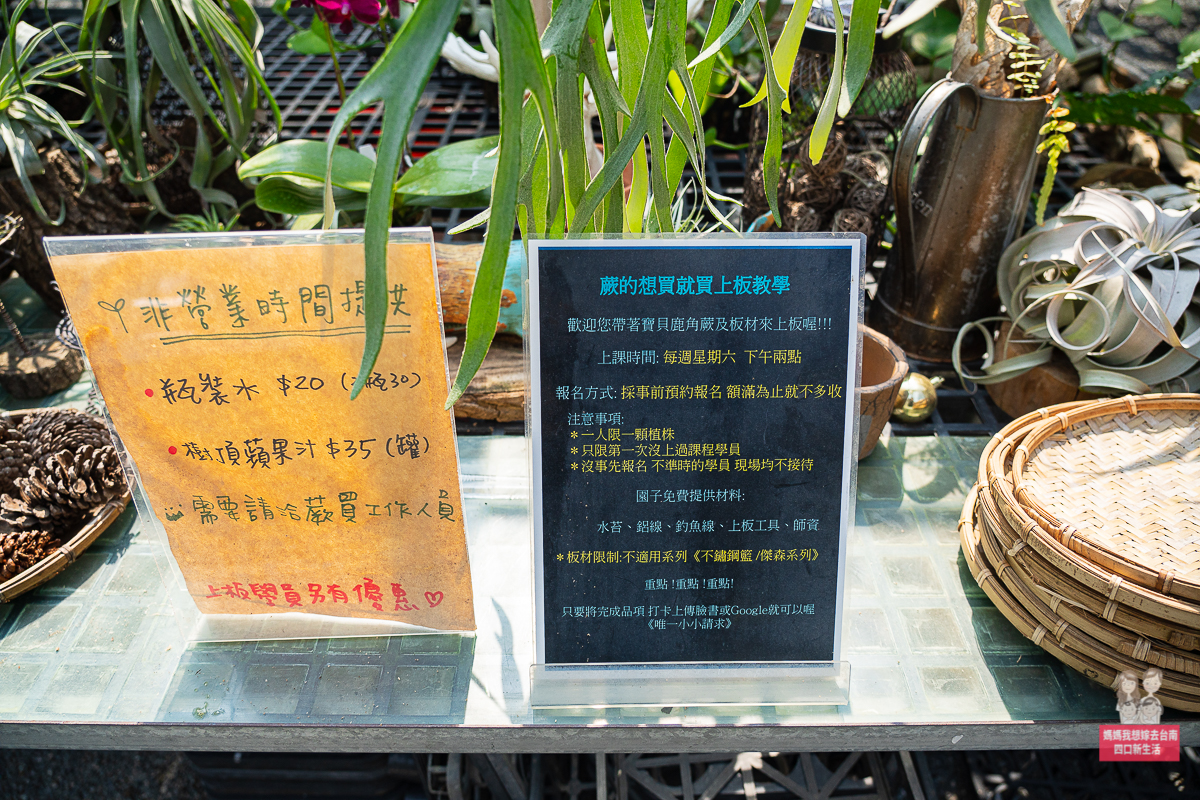 非營業時間提供
• 瓶裝水 $20 (2瓶30)
• 樹頂蘋果汁 $35 (罐)
需要請洽蕨買工作人員
上板學員另有優惠♡
蕨的想買就買上板教學
歡迎您帶著寶貝鹿角蕨及板材來上板喔!!!
上課時間: 每週星期六 下午兩點
報名方式: 採事前預約報名 額滿為止就不多收
注意事項:
＊一人限一顆植株
＊只限第一次沒上過課程學員
＊沒事先報名 不準時的學員 現場均不接待
園子免費提供材料:
水苔、鋁線、釣魚線、上板工具、師資
＊板材限制:不適用系列《不鏽鋼籃 /傑森系列》
重點 !重點 !重點!
只要將完成品項 打卡上傳臉書或Google就可以喔
《唯一小小請求》
媽媽我想嫁去台南
四口新生活